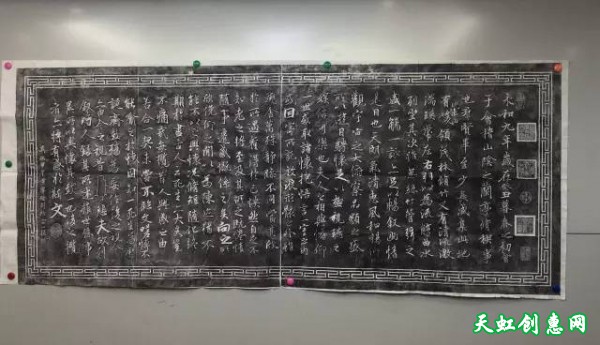 永和九年歲在癸丑暮春之初會
于會稽山陰之蘭亭脩稧事
也羣賢畢至少長咸集此地
有崇山峻領茂林脩竹又有清流激
湍暎帶左右引以為流觴曲水
列坐其次雖無絲竹管弦之
盛一觴一詠亦足以暢敘幽情
是日也天朗氣清惠風和暢仰
觀宇宙之大俯察品類之盛
所以遊目騁懷足以極視聽之
娛信可樂也夫人之相與俯仰
一世或取諸懷抱悟言一室之內
或因寄所託放浪形骸之外雖
趣舍萬殊靜躁不同當其欣
於所遇蹔得於己快然自足不
知老之將至及其所之既惓情
隨事遷感慨係之矣向之所
欣俛仰之間以為陳迹猶不
能不以之興懷況脩短隨化終
期於盡古人云死生亦大矣豈
不痛哉每攬昔人興感之由
若合一契未嘗不臨文嗟悼不
能喻之於懷固知一死生為虛
誕齊彭殤為妄作後之視今
亦由今之視昔悲夫故列
叙時人錄其所述雖世殊事
異所以興懷其致一也後之攬
者亦將有感於斯文
天虹创惠网